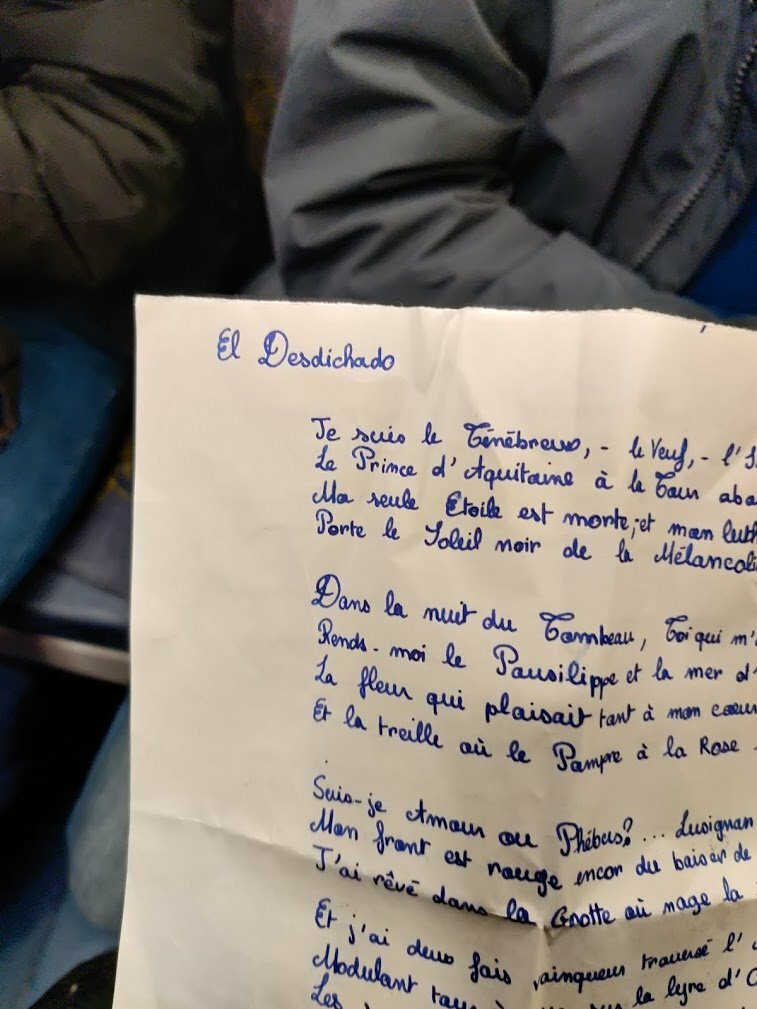 El Desdichado
Je suis le Ténébreux, - le Veuf, - l'I
Le Prince d'Aquitaine à la Tour aba
Ma seule Etoile est morte, et mon luth
Porte le Soleil noir de la Mélancoli
Dans la nuit du Tombeau, Toi qui m'
Rends-moi le Pausilippe et la mer d'
La fleur qui plaisait tant à mon cœur
Et la treille où le Pampre à la Rose
Suis-je Amour ou Phébus? ... Lusignan
Mon front est rouge encor du baiser de
J'ai rêvé dans la Grotte où nage la
Et j'ai deux fois vainqueur traversé l'
Modulant tour à sur la lyre d'O
Les